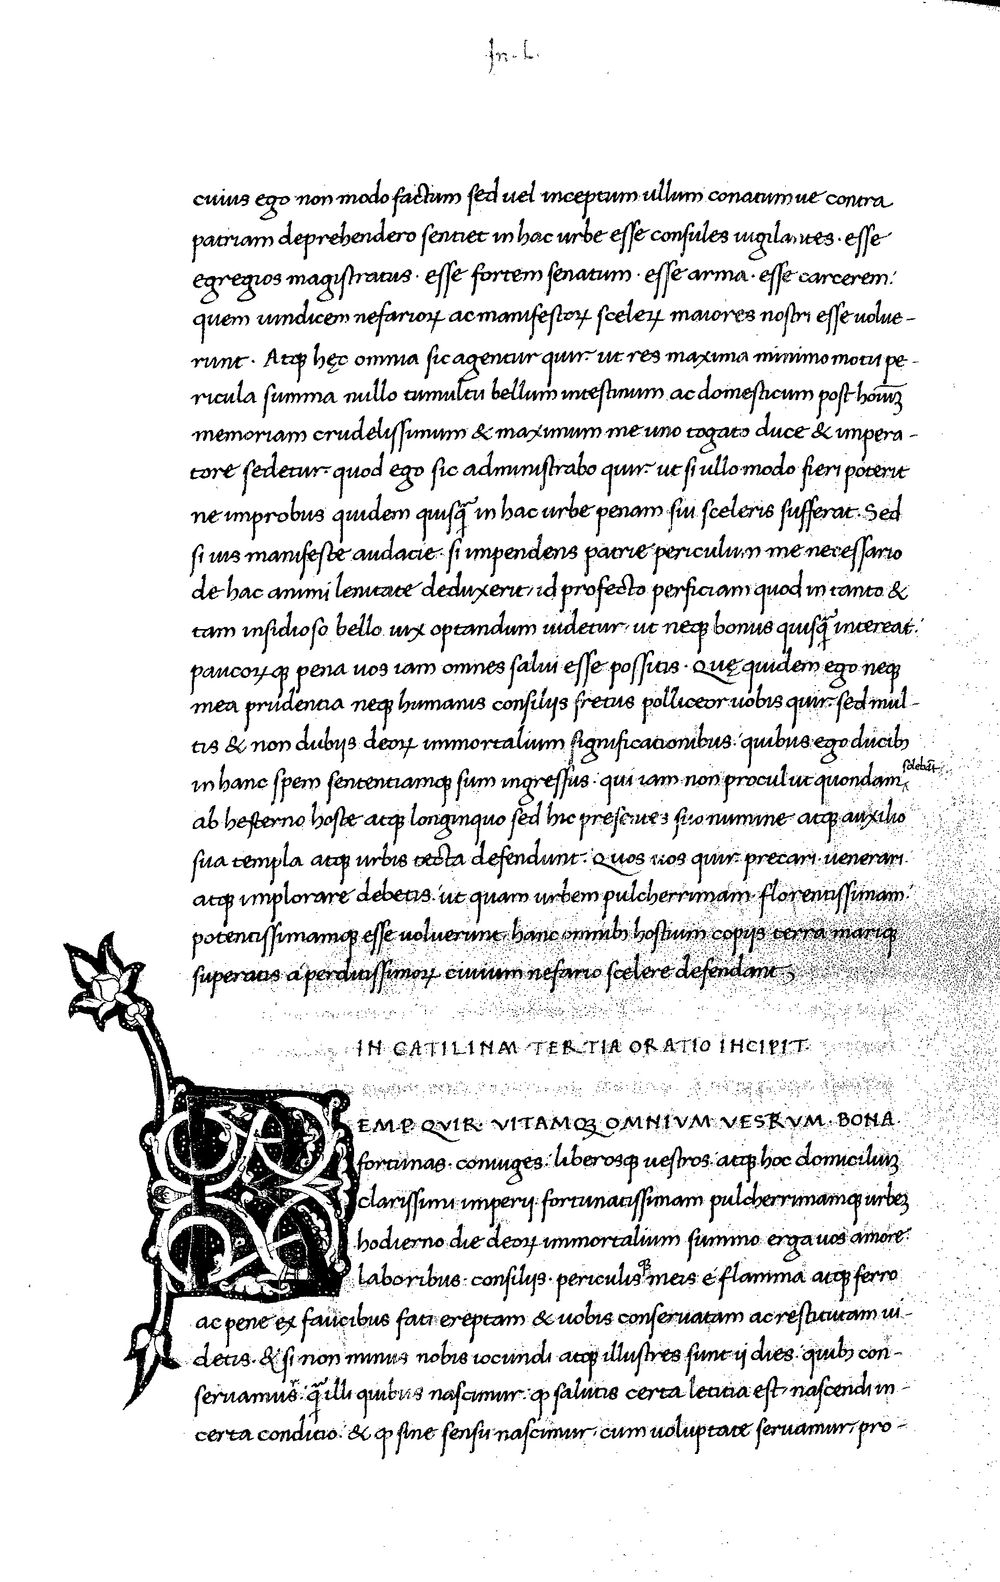 In. L.
cuius ego non modo factum sed uel inceptum ullum conatumue contra
patriam deprehendero sentiet in hac urbe esse consules uigilantes · esse
egregios magistratus · esse fortem senatum · esse arma · esse carcerem:
quem uindicem nefarioꝝ ac manifestoꝝ sceleꝝ maiores nostri esse uolue-
runt · Atqꝫ hęc omnia sic agentur quir: ut res maxima minimo motu pe-
ricula summa nullo tumultu bellum intestinum ac domesticum post hoıūꝫ
memoriam crudelissimum & maximum me uno togato duce & impera-
tore sedetur: quod ego sic administrabo quir: ut si ullo modo fieri poterit
ne improbus quidem quisq̄ in hac urbe penam sui sceleris sufferat. Sed
si uis manifeste audacie: si impendens patrie periculum me necessario
de hac animi lenitate deduxerit, id profecto perficiam quod in tanto &
tam insidioso bello uix optandum uidetur, ut neqꝫ bonus quisq̄ intereat:
paucoꝝqꝫ pena uos iam omnes salui esse possitis · Quę quidem ego neqꝫ
mea prudentia neqꝫ humanis consilijs fretus polliceor uobis quir: sed mul-
tis & non dubijs deoꝝ immortalium significationibus: quibus ego ducibꝫ
in hanc spem sententiamqꝫ sum ingressus: qui iam non procul ut quondam solebāt
ab hesterno hoste atqꝫ longinquo sed hic presentes suo numine atqꝫ auxilio
sua templa atqꝫ urbis tecta defendunt: Quos uos quir: precari uenerari
atqꝫ implorare debetis: ut quam urbem pulcherrimam florentissimam
potentissimamqꝫ esse uoluerunt, hanc omnibꝫ hostium copijs terra mariqꝫ
superatis a perditissimoꝝ ciuium nefario scelere defendant
IN CATILINAM TERTIA ORATIO INCIPIT
REMP. QVIR· VITAMQꝫ OMNIVM VESRVM. BONA
fortunas · coniuges: liberosqꝫ uestros: atqꝫ hoc domiciliuꝫ
clarissimi imperij fortunatissimam pulcherrimamqꝫ urbeꝫ
hodierno die deoꝝ immortalium summo erga uos amore:
laboribus · consilijs · periculis meis e flamma atqꝫ ferro
ac pene ex faucibus fati ereptam & uobis conseruatam ac restitutam ui-
detis. & si non minus nobis iocundi atqꝫ illustres sunt ij dies quibꝫ con-
seruamur: q̄ illi quibus nascimur: ꝙ salutis certa letitia est, nascendi in-
certa conditio: & ꝙ sine sensu nascimur, cum uoluptate seruamur, pro-